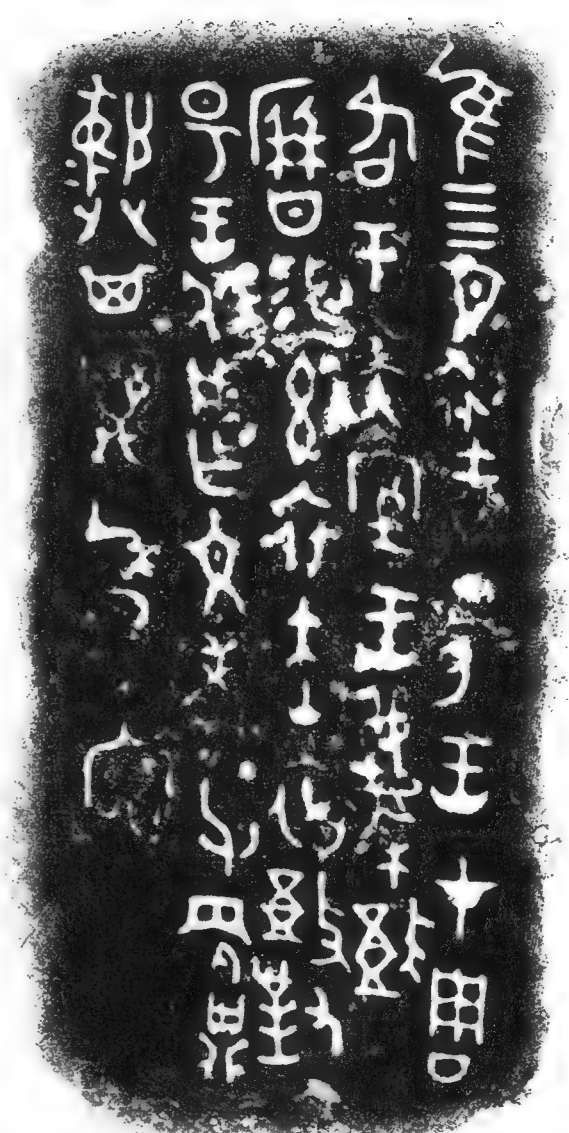 隹四月初吉丁亥王才周
各于大室王蔑敔
曆易玄衣赤敔對
揚王休用乍文考父丙鼎
彝其萬年寶